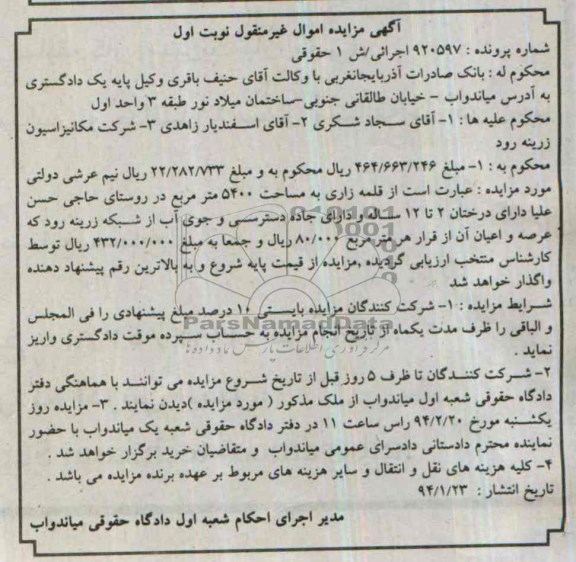 آگهی مزایده اموال غیرمنقول نوبت اول
شماره پرونده : ۹۲۰۵۹۷ اجرائی/ش ۱ حقوقی
محکوم له : بانک صادرات آذربایجانغربی با وکالت آقای حنیف باقری وکیل پایه یک دادگستری
به آدرس میاندواب - خیابان طالقانی جنوبی-ساختمان میلاد نور طبقه ۳ واحد اول
محکوم علیه ها : ۱- آقای سجاد شکری ۲- آقای اسفندیار زاهدی ۳- شرکت مکانیزاسیون
زرینه رود
محکوم به : ۱- مبلغ ۴۶۴/۶۶۳/۲۴۶ ریال محکوم به و مبلغ ۲۲/۲۸۲/۷۳۳ ریال نیم عرشی دولتی
مورد مزایده : عبارت است از قلمه زاری به مساحت ۵۴۰۰ متر مربع در روستای حاجی حسن
علیا دارای درختان ۲ تا ۱۲ ساله و دارای جاده دسترسی و جوی آب از شبکه زرینه رود که
عرصه و اعیان آن از قرار هر متر مربع ۸۰/۰۰۰ ریال و جمعا به مبلغ ۴۳۲/۰۰۰/۰۰۰ ریال توسط
کارشناس منتخب ارزیابی گردیده ,مزایده از قیمت پایه شروع و به بالاترین رقم پیشنهاد دهنده
واگذار خواهد شد
شرایط مزایده : ۱- شرکت کنندگان مزایده بایستی ۱۰ درصد مبلغ پیشنهادی را فی المجلس
و الباقی را ظرف مدت یکماه از تاریخ انجام مزایده به حساب سپرده موقت دادگستری واریز
نماید .
۲- شرکت کنندگان تا ظرف ۵ روز قبل از تاریخ شروع مزایده می توانند با هماهنگی دفتر
دادگاه حقوقی شعبه اول میاندواب از ملک مذکور ( مورد مزایده )دیدن نمایند . ۳- مزایده روز
یکشنبه مورخ ۹۴/۲/۲۰ راس ساعت ۱۱ در دفتر دادگاه حقوقی شعبه یک میاندواب با حضور
نماینده محترم دادستانی دادسرای عمومی میاندواب و متقاضیان خرید برگزار خواهد شد .
۴- کلیه هزینه های نقل و انتقال و سایر هزینه های مربوط بر عهده برنده مزایده می باشد .
تاریخ انتشار : ۹۴/۱/۲۳
مدیر اجرای احکام شعبه اول دادگاه حقوقی میاندواب
ParsNamadData